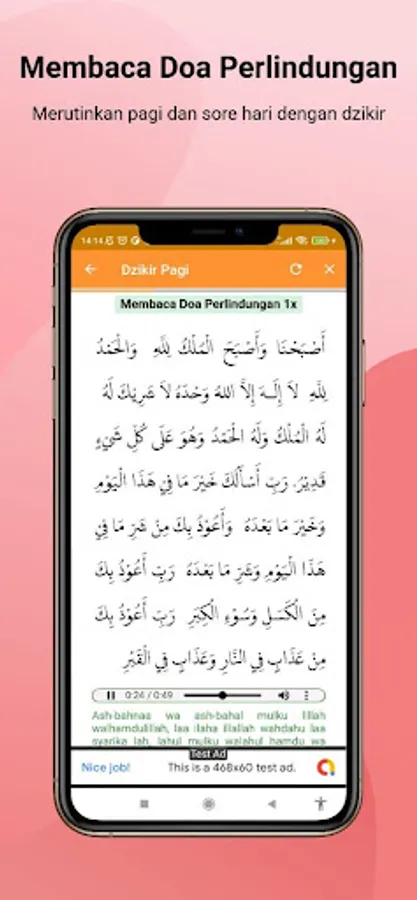 Membaca Doa Perlindungan
Merutinkan pagi dan sore hari dengan dzikir
14:14
Dzikir Pagi
Membaca Doa Perlindungan 1x
أَصْبَحْنَا وَأَصْبَحَ الْمُلْكُ لِلَّهِ وَالْحَمْدُ
لِلَّهِ لَا إِلَـهَ إِلَّا اللهُ وَحْدَهُ لَا شَرِيْكَ لَهُ
لَهُ الْمُلْكُ وَلَهُ الْحَمْدُ وَهُوَ عَلَى كُلِّ شَيْءٍ
قَدِيْرُ. رَبِّ أَسْأَلُكَ خَيْرَ مَا فِيْ هَذَا الْيَوْمِ
وَخَيْرَ مَا بَعْدَهُ وَأَعُوْذُ بِكَ مِنْ شَرِّ مَا فِيْ
هَذَا الْيَوْمِ وَشَرِّ مَا بَعْدَهُ رَبِّ أَعُوْذُ بِكَ
مِنَ الْكَسَلِ وَسُوْءِ الْكِبَرِ رَبِّ أَعُوْذُ بِكَ
مِنْ عَذَابٍ فِي النَّارِ وَعَذَابٍ فِي الْقَبْرِ
0:24 / 0:49
Ash-bahnaa wa ash-bahal mulku lillah
walhamdulillah, laa ilaha illallah wahdahu laa
syarika lah, lahul mulku walahul hamdu wa
Test Ad
Nice job! This is a 468x60 test ad.